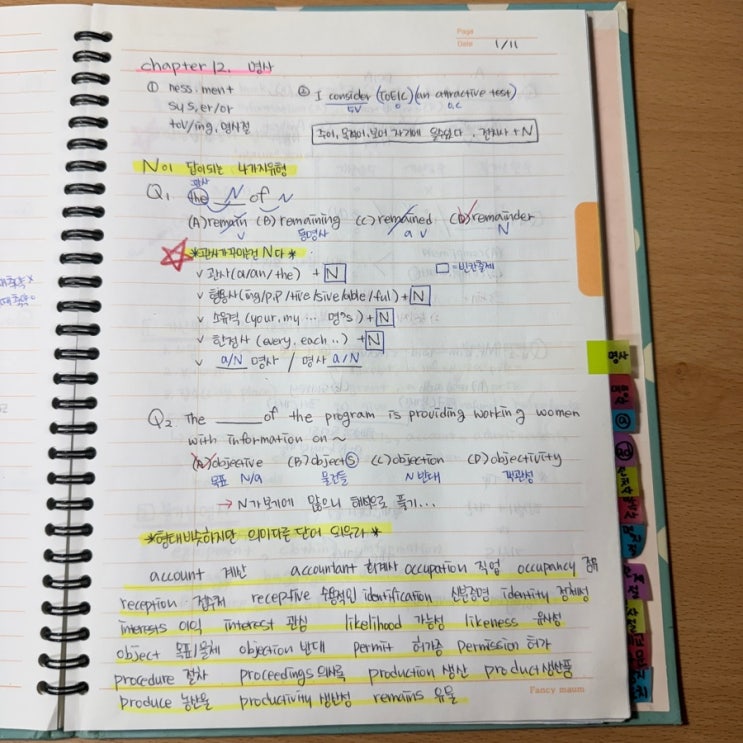 Page
Date 1/11
chapter 12. 명사
① ness. ment
sy s, er/or
toV/ing, 명사절
② I consider (TOEIC) (an attractive test)
5V O O.C
주어, 목적어, 보어 자리에 올수있다. 전치사 + N
N이 답이되는 4가지유형
관사
Q1. the ___N___ of N
(A) remain (B) remaining (C) remained (D) remainder
V 동명사 a V N
*관사가꾸미는건 N다*
v 관사(a/an/the) + N □=빈칸출제
v 형용사(ing/p.p/tive/sive/able/ful) + N
v 소유격 (your, my ... 명's) + N
v 한정사 (every, each..) + N
v a/N 명사 / 명사 a/N
Q2. The ___ of the program is providing working women
with information on ~
(A) objective (B) objects (C) objection (D) objectivity
목표 N/a 물건들 N 반대 객관성
→ N가 보기에 많으니 해석으로 풀기...
*형태비슷하지만 의미다른 단어 외우라*
account 계난 accountant 회계사 occupation 직업 occupancy 점유
reception 접수처 receptive 수용적인 identification 신분증명 identity 정체성
interests 이익 interest 관심 likelihood 가능성 likeness 유사성
object 목표/물체 objection 반대 permit 허가증 permission 허가
procedure 절차 proceedings 의사록 production 생산 product 생산품
produce 농산물 productivity 생산성 remains 유물
Fancy maum
명사